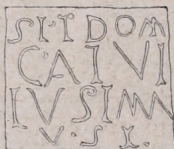 SI·I DOM
CAIVI
IVSIMN
V·S I.